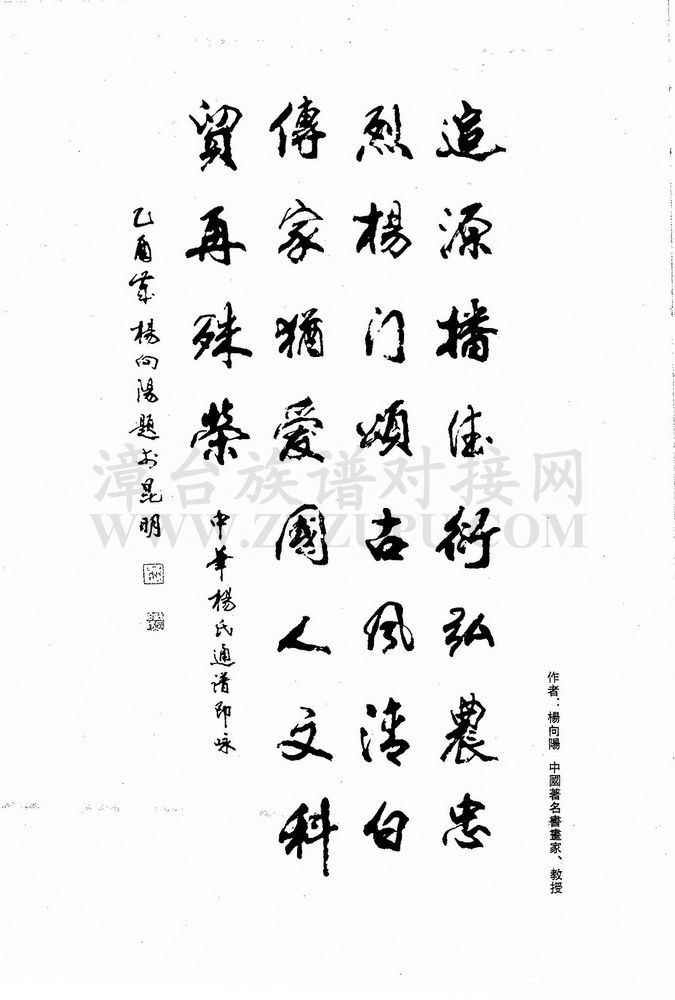 作者：楊向陽 中國著名書畫家、教授
追源播衍弘農忠
烈楊門頌古風清白
傳家猶愛國人文科
貿再殊榮
中華楊氏通譜即咏
乙酉歲楊向陽題於昆明
漳台族谱对接网
WWW.ZTZUPU.COM